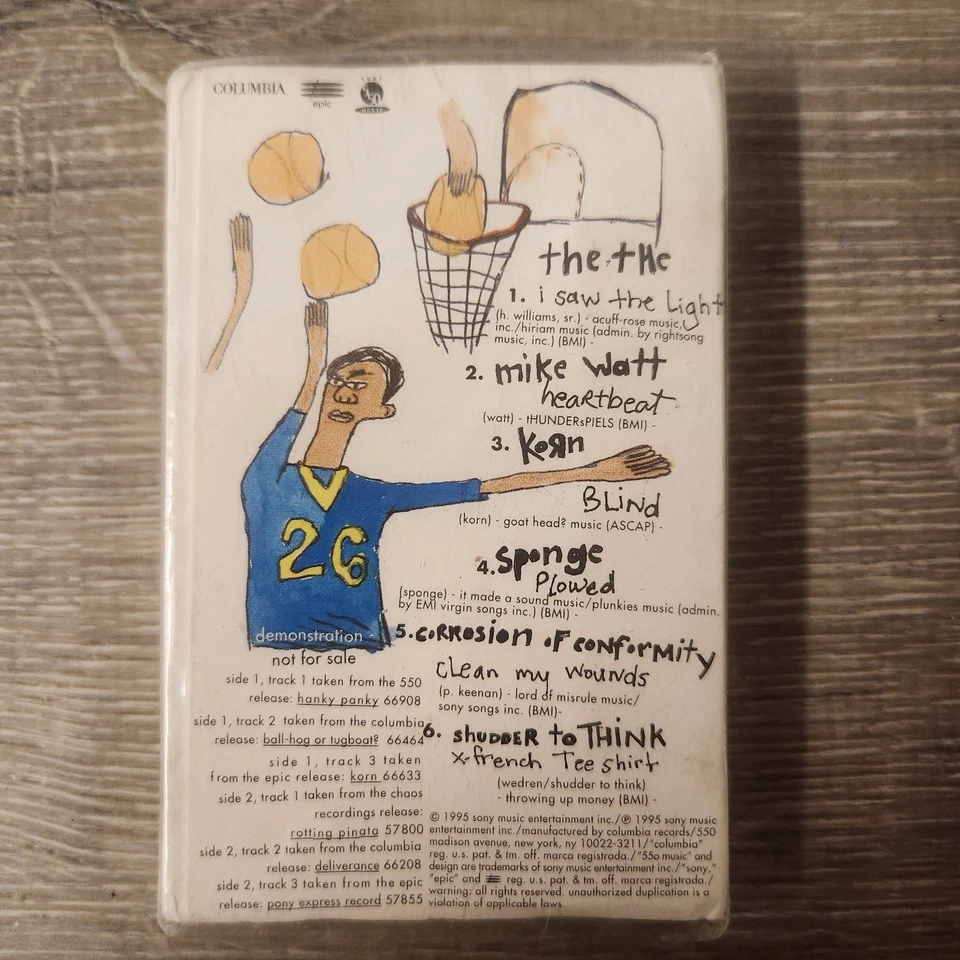 COLUMBIA
epic
550
MUSIC
the the
1. i saw the Light
(h. williams, sr.) - acuff-rose music,
inc./hiriam music (admin. by rightsong
music, inc.) (BMI) -
2. mike watt
heartbeat
(watt) - tHUNDERsPIELS (BMI) -
3. KoЯn
BLiNd
(korn) - goat head? music (ASCAP) -
4. sponge
Plowed
(sponge) - it made a sound music/plunkies music (admin.
by EMI virgin songs inc.) (BMI) -
5. corrosion of conformity
clean my wounds
(p. keenan) - lord of misrule music/
sony songs inc. (BMI)-
6. shudder to THINK
x-french Tee shirt
(wedren/shudder to think)
- throwing up money (BMI) -
26
demonstration -
not for sale
side 1, track 1 taken from the 550
release: hanky panky 66908
side 1, track 2 taken from the columbia
release: ball-hog or tugboat? 66464
side 1, track 3 taken
from the epic release: korn 66633
side 2, track 1 taken from the chaos
recordings release:
rotting pinata 57800
side 2, track 2 taken from the columbia
release: deliverance 66208
side 2, track 3 taken from the epic
release: pony express record 57855
© 1995 sony music entertainment inc./℗ 1995 sony music
entertainment inc./manufactured by columbia records/550
madison avenue, new york, ny 10022-3211/"columbia"
reg. u.s. pat. & tm. off. marca registrada./"55o music" and
design are trademarks of sony music entertainment inc./"sony,"
"epic" and reg. u.s. pat. & tm. off. marca registrada./
warning: all rights reserved. unauthorized duplication is a
violation of applicable laws.